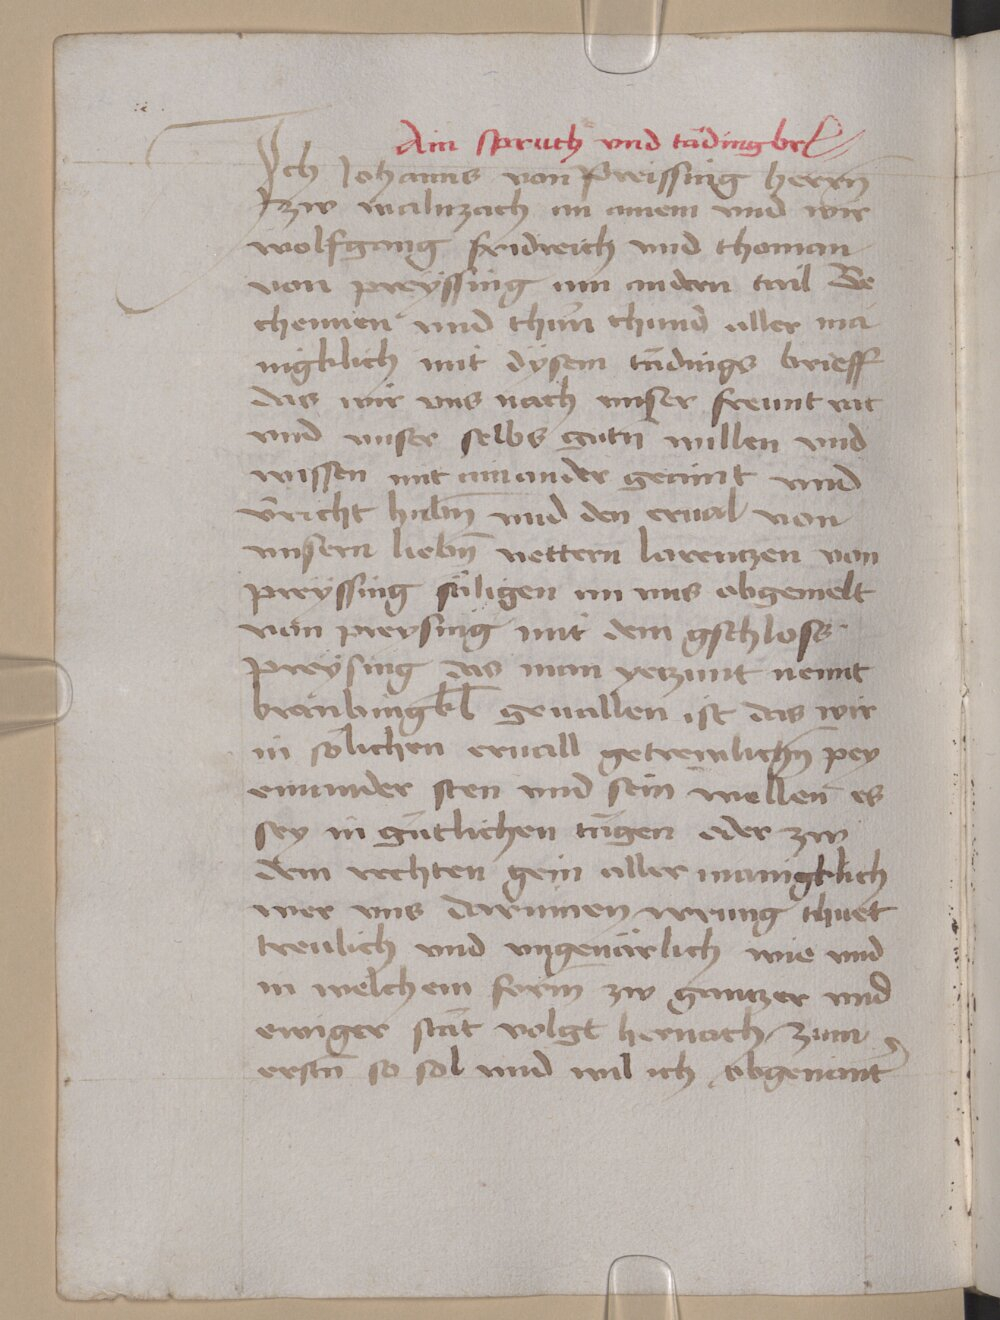 Ain spruch vnd tädingbrℓ
Ich Johanns von Preissing herrn
zw walnzach an ainem vnd wir
wolfgang fridreich vnd thoman
von preyssing am andern tail Be
chennen vnd thun chund aller mä
nigklich mit dysem tädings brieff
das wir vns nach vnser freunt rat
vnd vnser selbs gutn willen vnd
wissen mit ainander geaint vnd
v̄richt habn̄ vnd den erual von
vnsern liebn̄ vettern larentzen von
preyssing säligen an vns obgemelt
von preysing mit dem gschloss
preysing das man yetzunt nennt
geuallen ist das wir
in sölichen eruall getrewlichn̄ pey
einander sten vnd sein wellen es
sey in gütlichen tägen oder zw
dem rechten gein aller manigklich
wer vns darinnen irrung thuet
treulich vnd vngeuärlich wie vnd
in welchem form zw gantzer vnd
ewiger stät volgt hernach Zum
erstn̄ so sol vnd wil ich obgenant